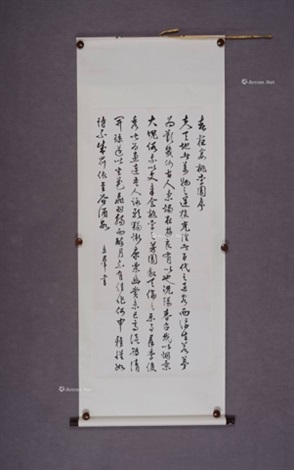 春夜宴桃李園序
夫天地者萬物之逆旅光陰者百代之過客而浮生若夢
為歡幾何古人秉燭夜遊良有以也況陽春召我以烟景
大塊假我以文章會桃李之芳園敘天倫之樂事群季俊
秀皆為惠連吾人詠歌獨慚康樂幽賞未已高談轉清
開瓊筵以坐花飛羽觴而醉月不有佳作何申雅懷如
詩不成罰依金谷酒數
書